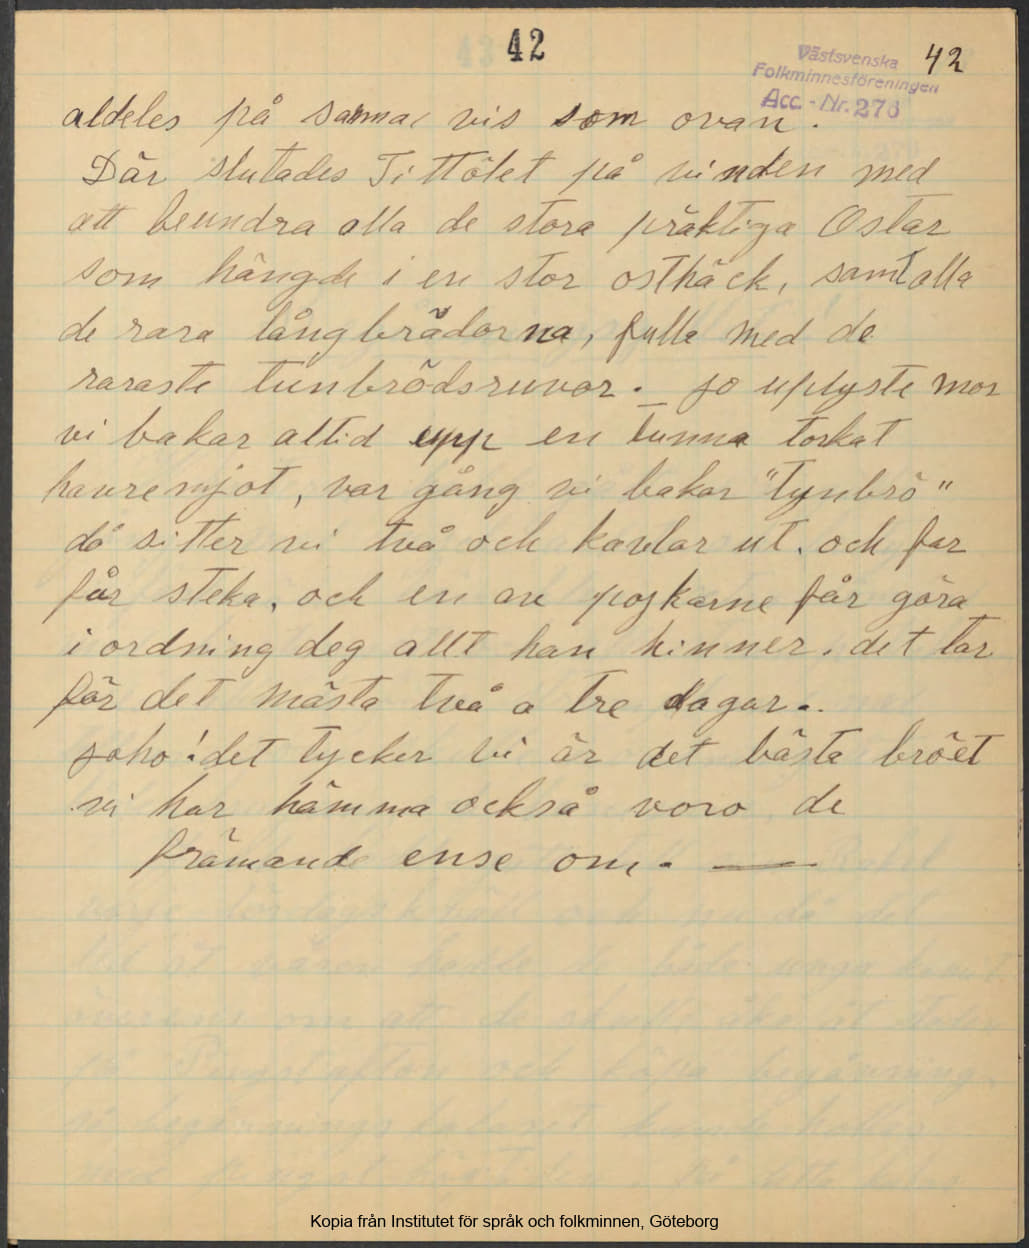 42
42
Västsvenska
Folkminnesföreningen
Acc. - Nr. 276
aldeles på samma vis som ovan.
Där slutades Tittölet på vinden med
att beundra alla de stora präktiga Ostar
som hängde i en stor osthäck, samt alla
de rara långbrädorna, fulla med de
raraste tunbrödsruvor. _ jo uplyste mor
vi bakar altid upp en tunna torkat
havremjöt, var gång vi bakar "tynbrö"
då sitter vi två och kavlar ut. och far
får steka, och en av pojkarne får göra
i ordning deg allt han hinner. det tar
för det mästa två a tre dagar..
joho! det tycker vi är det bästa bröet
vi har hämma också voro de
främande ense om. —
Kopia från Institutet för språk och folkminnen, Göteborg